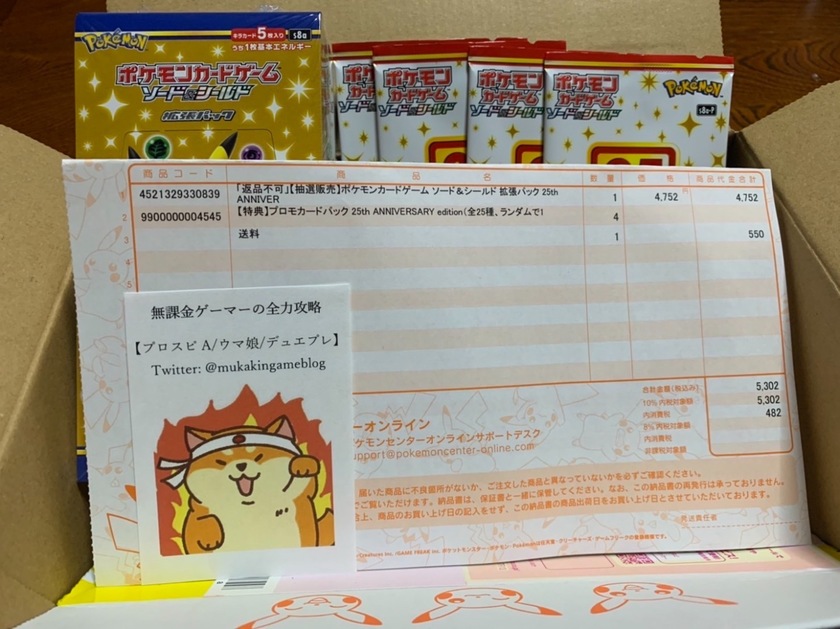 POKÉMON
キラカード5枚入り
うち1枚基本エネルギー
s8a
ポケモンカードゲーム
ソード&シールド
拡張パック
ポケモン
カードゲーム
ソード&シールド
ポケモン
カードゲーム
ソード&シールド
ポケモン
カードゲーム
ソード&シールド
POKÉMON
s8a-P
商品コード 商品名 数量 価格 商品代金合計
1 4521329330839 「返品不可」【抽選販売】ポケモンカードゲーム ソード&シールド 拡張パック 25th 1 4,752 4,752
ANNIVER
2 9900000004545 【特典】プロモカードパック 25th ANNIVERSARY edition(全25種、ランダムで1 4
3 送料 1 550
合計金額(税込み) 5,302
10% 内税対象額 5,302
内消費税 482
8% 内税対象額
内消費税
非課税対象額
ーオンライン
ケモンセンターオンラインサポートデスク
upport@pokemoncenter-online.com
届いた商品に不良箇所がないか、ご注文した商品と異なっていないかを必ずご確認ください。
でご覧いただけます。納品書は、保証書と一緒に保管してください。なお、この納品書の再発行は承っておりません。
合上、商品のお買い上げ日の記入をせず、この納品書の商品出荷日をお買い上げ日とさせていただいております。
発送責任者
無課金ゲーマーの全力攻略
【プロスピA/ウマ娘/デュエプレ】
Twitter: @mukakingameblog